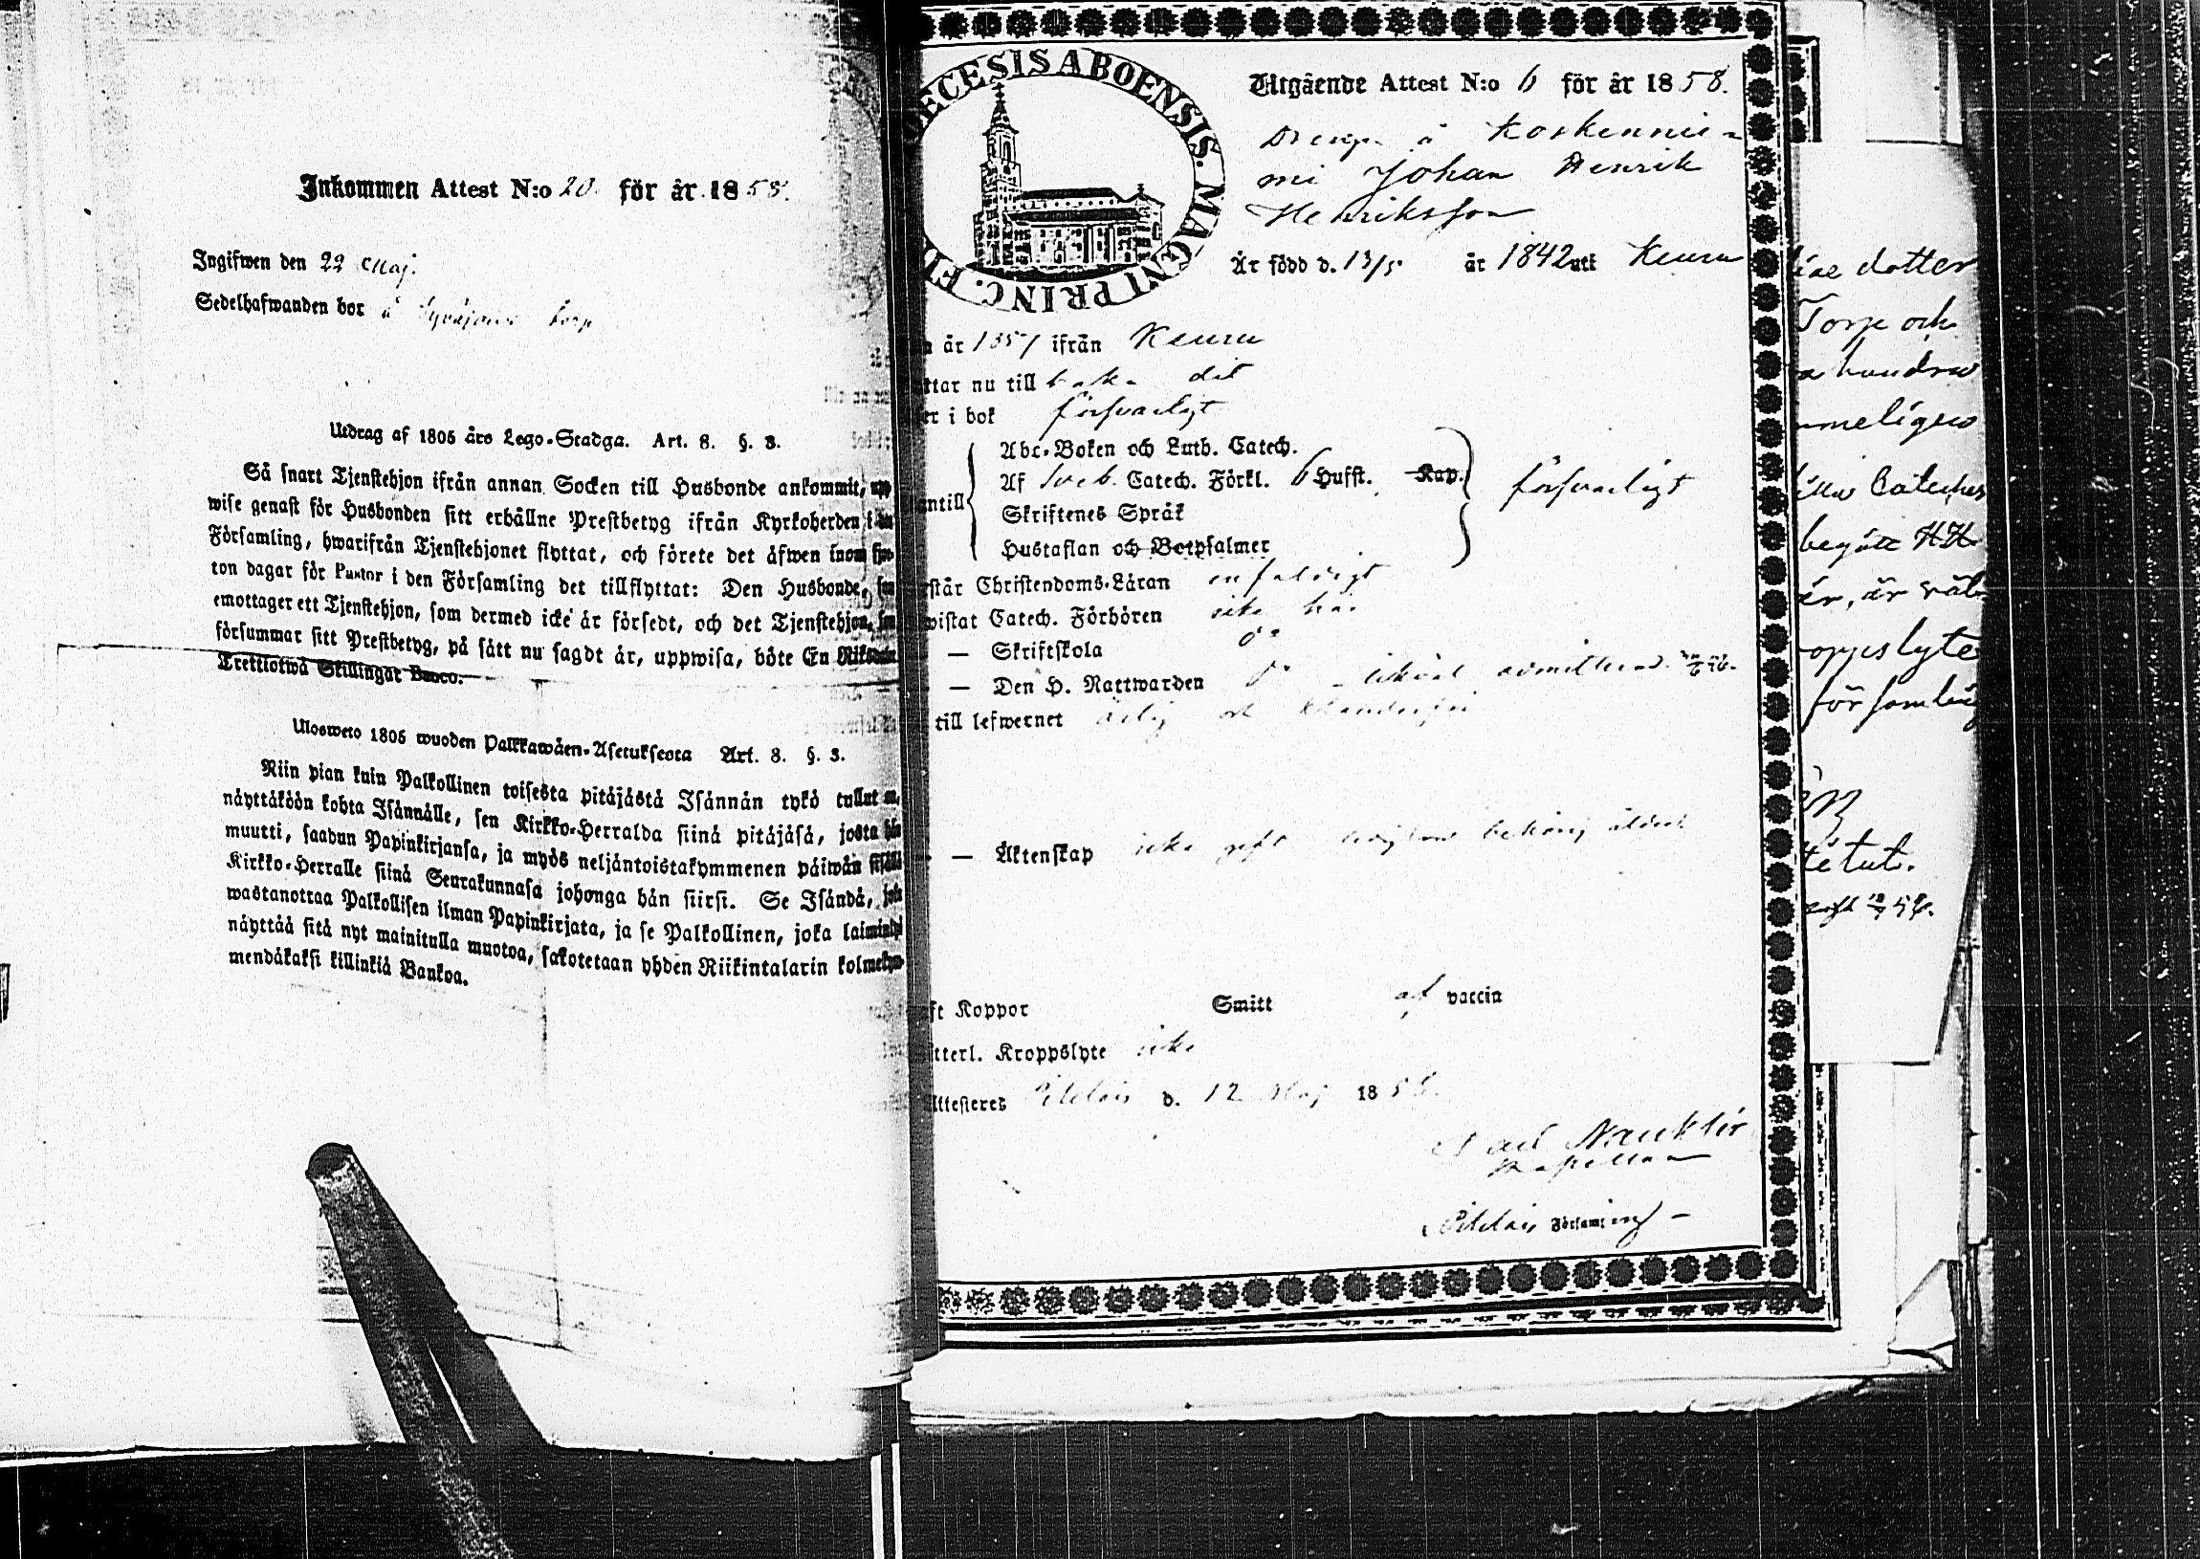 Inkommen Attest N:o 20. för år 1858.
Ingifwen den 22 Maj.
Sedelhafwanden bor å torp
Utdrag af 1805 års Lego-Stadga. Art. 8. §. 3.
Så snart Tjenstehjon ifrån annan Socken till Husbonde ankommit, upp
wise genast för Husbonden sitt erhållne Prestbetyg ifrån Kyrkoherden i
Församling, hwarifrån Tjenstehjonet flyttat, och förete det åfwen inom fjor-
ton dagar för Pastor i den Församling det tillflyttat: Den Husbonde, som
emottager ett Tjenstehjon, som dermed icke är försedt, och det Tjenstehjon, som
försummar sitt Prestbetyg, på sätt nu sagdt är, uppwisa, böte En Riksdaler
Trettiotwå Skillingar Banco.
Ulosweto 1805 wuoden Palkkawäen-Asetuksesta Art. 8. §. 3.
Niin pian kuin Palkollinen toisesta pitäjästä Isännän tykö tullut on,
näyttäköön kohta Isännälle, sen Kirkko-Herralda siinä pitäjäsä, josta hän
muutti, saadun Papinkirjansa, ja myös neljäntoistakymmenen päiwän sisällä
Kirkko-Herralle siinä Seurakunnasa johonga hän siirsi. Se Isändä, joka
wastanottaa Palkollisen ilman Papinkirjata, ja se Palkollinen, joka laiminlyö
näyttää sitä nyt mainitulla muotoa, sakotetaan yhden Riikintalarin kolmekym-
mendäkaksi killinkiä Bankoa.
ECESIS ABOENSIS. MAGNI PRINC. FI
Utgående Attest N:o 6 för år 1858.
Drengen å Koskennie-
mi Johan Henrik
Henriksson
Är född d. 13/5 år 1842 uti Keuru
år 1857 ifrån Keuru
ttar nu till baka dit
er i bok försvarligt
Abc-Boken och Luth. Catech.
Af Sveb. Catech. Förkl. 6 Hufst. Kap.
antill försvarligt
Skriftenes Språk
Hustaflan och Botpsalmer
står Christendoms-Läran enfaldigt
wistat Catech. Förhören icke här
— Skriftskola do
— Den H. Nattwarden do admitterad
till lefwernet ärlig och
— Äktenskap icke gift
ft Koppor Smitt af vaccin
tterl. Kroppslyte icke
Attesteres d. 12 Maj 1858.
Nauklér
Kapellan
Församling
dotter
Torp och
hundra
begått H.H.
är, är väl
oppslyte
församling